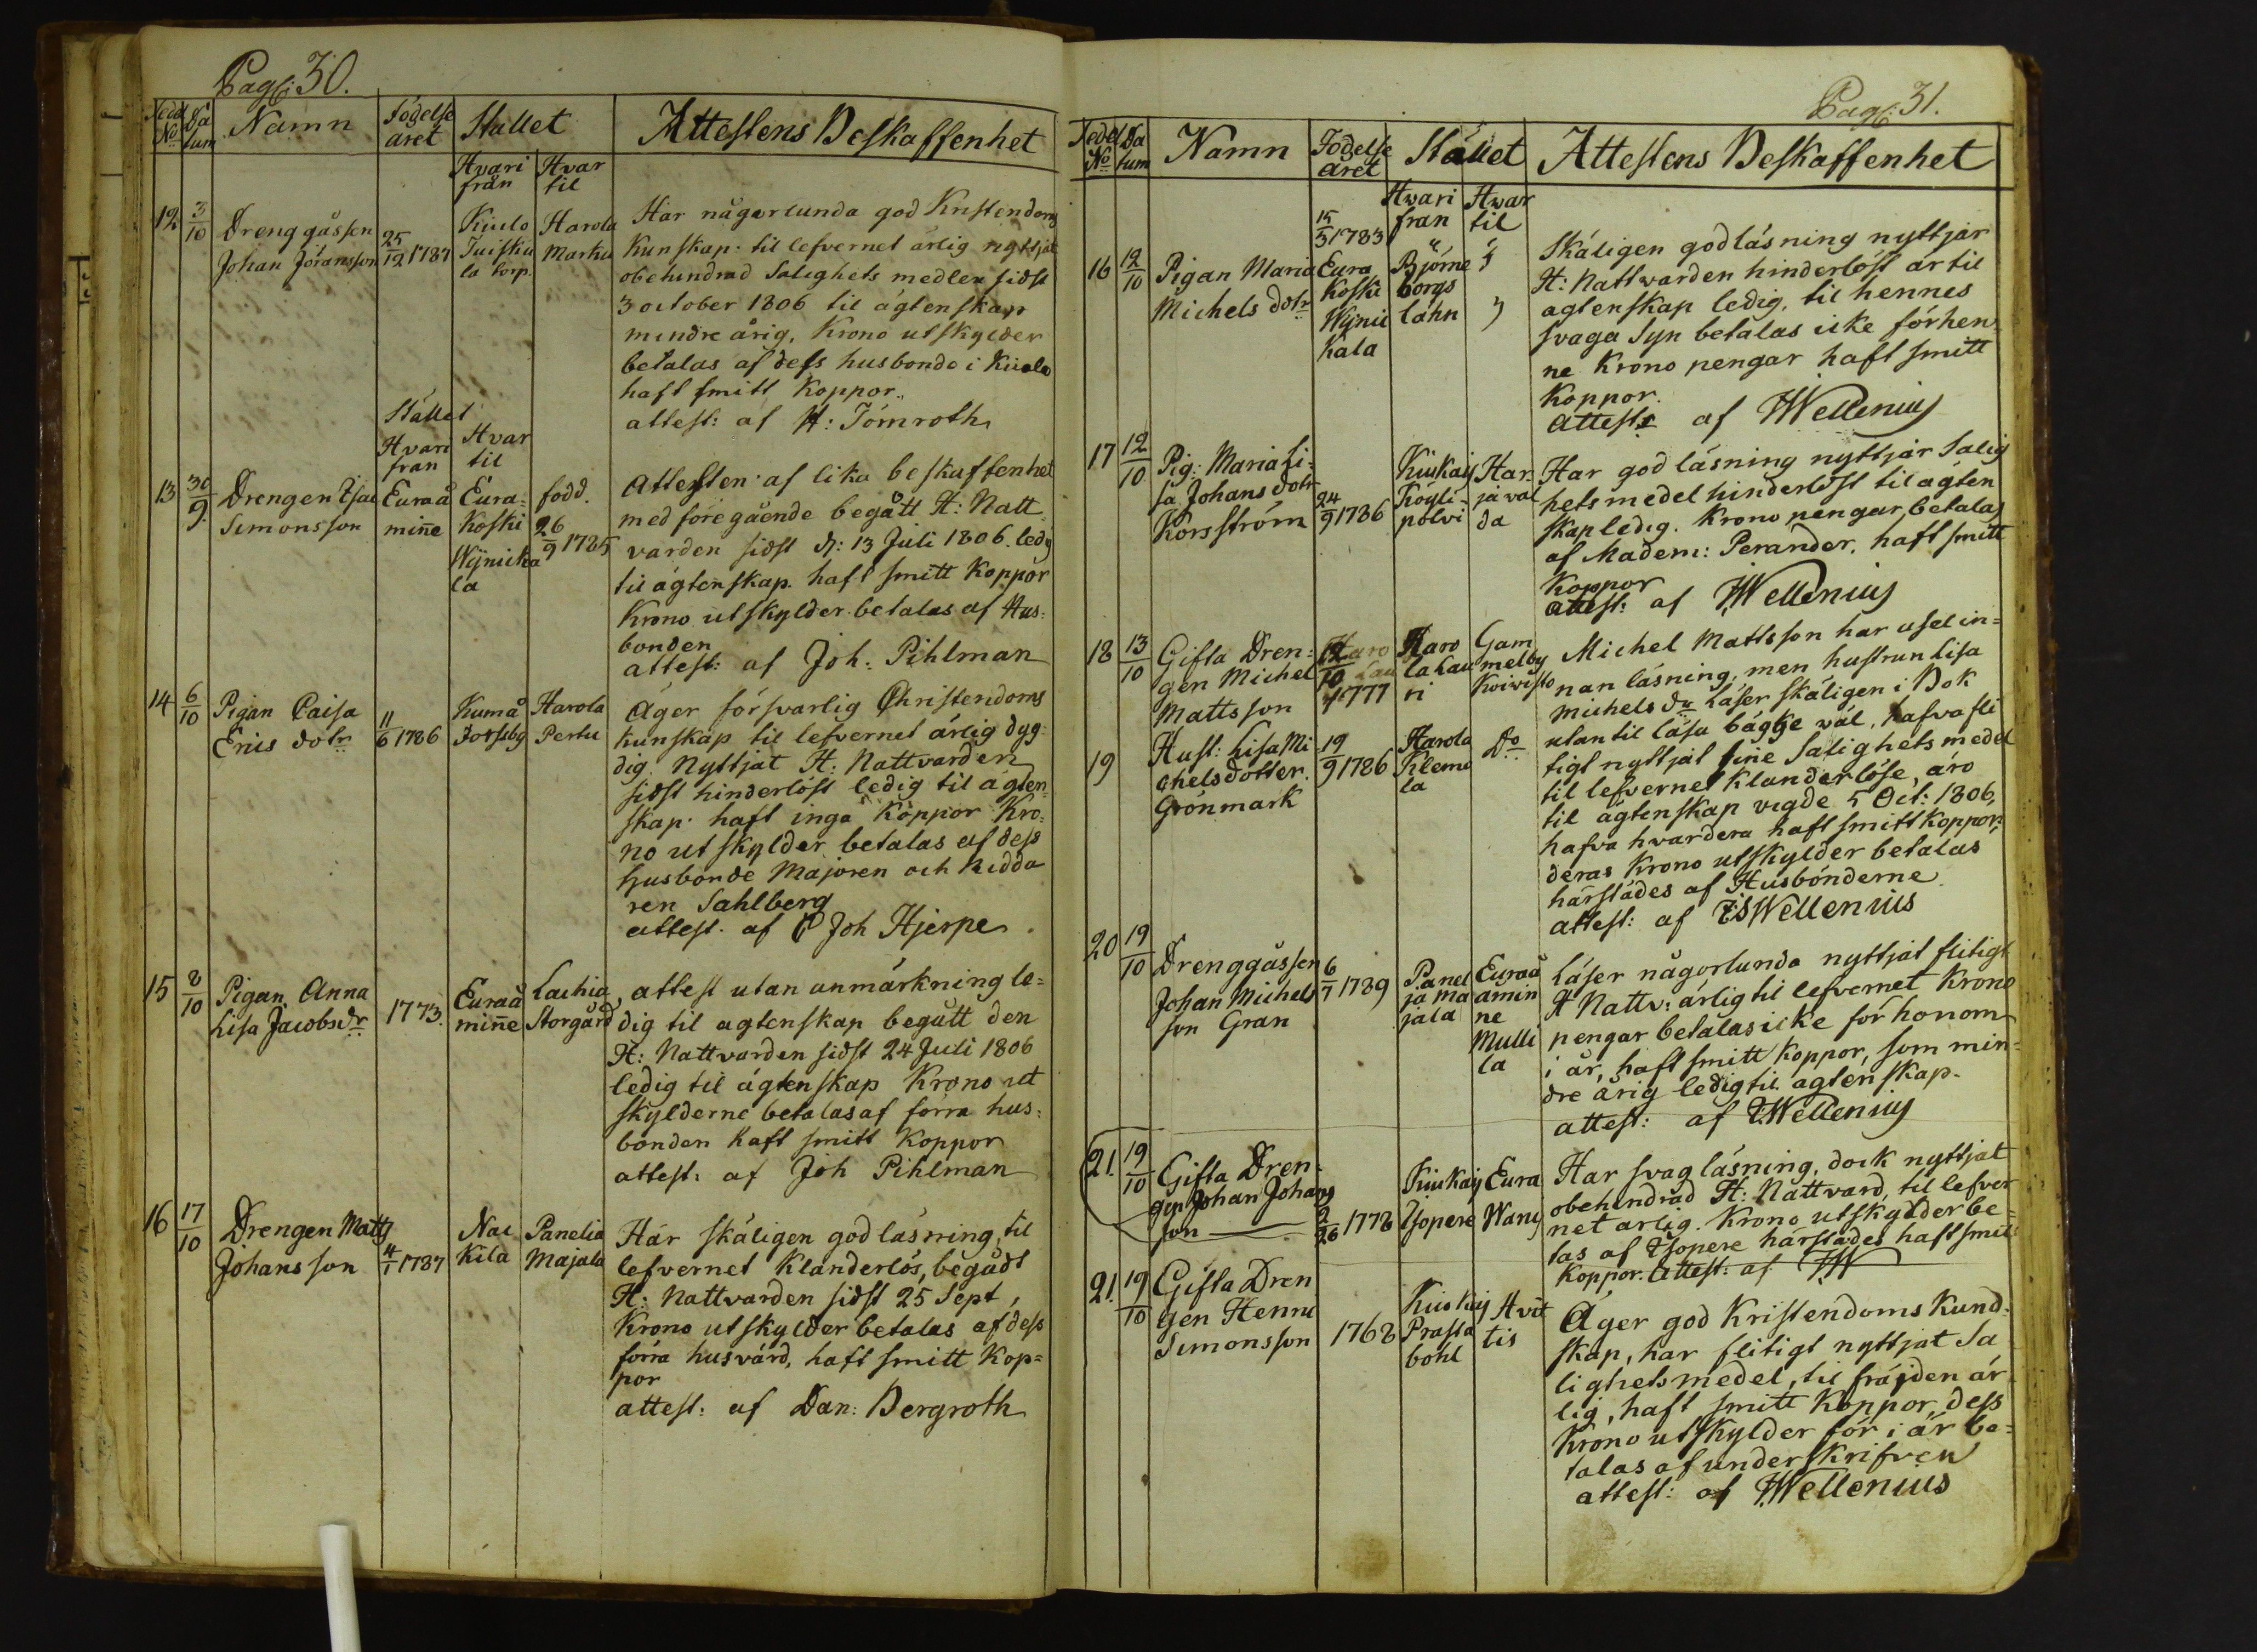 Pag: 30.
Sedel No Datum Namn Födelse året Stället Attestens Beskaffenhet
Hvari från Hvar til
12 3/10 Drenggåssen Johan Jöransson 25/12 1787 Kiulo Tuiskula Korp. Harola Marku
Har någorlunda god Kristendoms
kunskap. til lefvernet ärlig nyttjat
obehindrad Salighets medlen sidst
3 october 1806 til ägtenskap
mindre årig, Krono utskylder
betalas af dess husbonde i Kiulo
haft smitt Koppor.
attest: af H: Tömroth
Stället
Hvari från Hvar til
13 30/9. Drengen Isac Simonsson Euraåmiñe Eura Koski Wijnickala född. 26/9 1785
Attesten af lika beskaffenhet
med föregående begått H: Natt
varden sidst d: 13 Juli 1806. ledig
til ägtenskap. haft smitt Koppor
Krono utskylder betalas af Hus:
bonden
attest: af Joh: Pihlman
14 6/10 Pigan Caisa Erics dotr 11/6 1786 Kumå Forsby Harola Pertu
Äger försvarlig Christendoms
kunskap til lefvernet ärlig dyg:
dig. Nyttjat H: Nattvarden
sidst hinderlöst ledig til ägten=
skap. haft inga Koppor Kro:
no utskylder betalas af dess
husbonde Majoren och Ridda
ren Sahlberg
attest. af Joh Hjerpe.
15 8/10 Pigan Anna Lisa Jacobs dr 1773. Euraåmiñe Lachia Storgård
attest utan anmärkning le=
dig til agtenskap begått den
H: Nattvarden sidst 24 Juli 1806
ledig til ägtenskap Krono ut
skylderne betalas af förra hus:
bonden haft smitt Koppor
attest: af Joh Pihlman
16 17/10 Drengen Matts Johansson 4/1 1787 Nackila Panelia Majala
Har skäligen god läsning, til
lefvernet Klanderlös, begådt
H: Nattvarden sidst 25 Sept,
Krono utskylder betalas af dess
förra husvärd, haft smitt Kop=
por
attest: af Dan: Bergroth
Pag: 31.
Sedel No Datum Namn Födelse året Stället Attestens Beskaffenhet
Hvari från Hvar til
16 12/10 Pigan Maria Michels dotr 15/3 1783 Eura Koski Wijnickala Björneborgs lähn
Skäligen god läsning nyttjar
H: Nattvarden hinderlöst är til
agtenskap ledig, til hennes
svaga Syn betalas icke för hen
ne Krono pengar haft smitt
Koppor.
Attest: af Wellenius
17 12/10 Pig: Maria Lisa Johans dotr Korsström 24/9 1786 Kiukais Köyli-polvi Harjavalda
Har god läsning nyttjar Salig
hets medel hinderlöst til ägten
skap ledig. Krono pengar betalas
af Madem: Perander, haft smitt
Koppor
attest: af Wellenius
18 13/10 Gifta Drengen Michel Mattsson 12/10 1777 Harola Lauri Gammelby Koivisto
19 Hust: Lisa Michelsdotter Grönmark 19/9 1786 Harola Klemola Do
Michel Mattsson har usel in=
nan läsning, men hustrun Lisa
Michels dr läser skäligen i Bok
utan til läsa bägge väl, hafva fli
tigt nyttjat sine Salighets medel
til lefvernet Klanderlöse, äro
til ägtenskap vigde 5 Oct: 1806,
hafva hvardera haft smitt Koppor,
deras Krono utskylder betalas
härstädes af Husbönderne
attest: af Wellenius
20 19/10 Drenggåssen Johan Michelsson Gran 6/7 1789 Panelja Majala Euraåminne Mullila
Läser någorlunda nyttjat flitigt
H Nattv: ärlig til lefvernet Krono
pengar betalas icke för honom
i år, haft smitt Koppor, som min=
dre årig ledig til ägtenskap.
attest: af Wellenius
21. 19/10 Gifta Drengen Johan Johansson 2/26 1778 Kiukais Isopere Eura Wani
Har svag läsning, dock nyttjat
obehindrad H: Nattvard, til lefver
net arlig. Krono utskylder be=
tas af Isopere härstädes haft smitt
Koppor. Attest: af
21. 19/10 Gifta Drengen Hennu Simonsson 1768 Kiukais Prastabohl Hvitis
Äger god Kristendoms Kund=
skap, har flitigt nyttjat Sa
lighets medel, til fräjden är
lig, haft smitt Koppor, dess
Krono utskylder för i år be=
talas af underskrifven
attest: af Wellenius